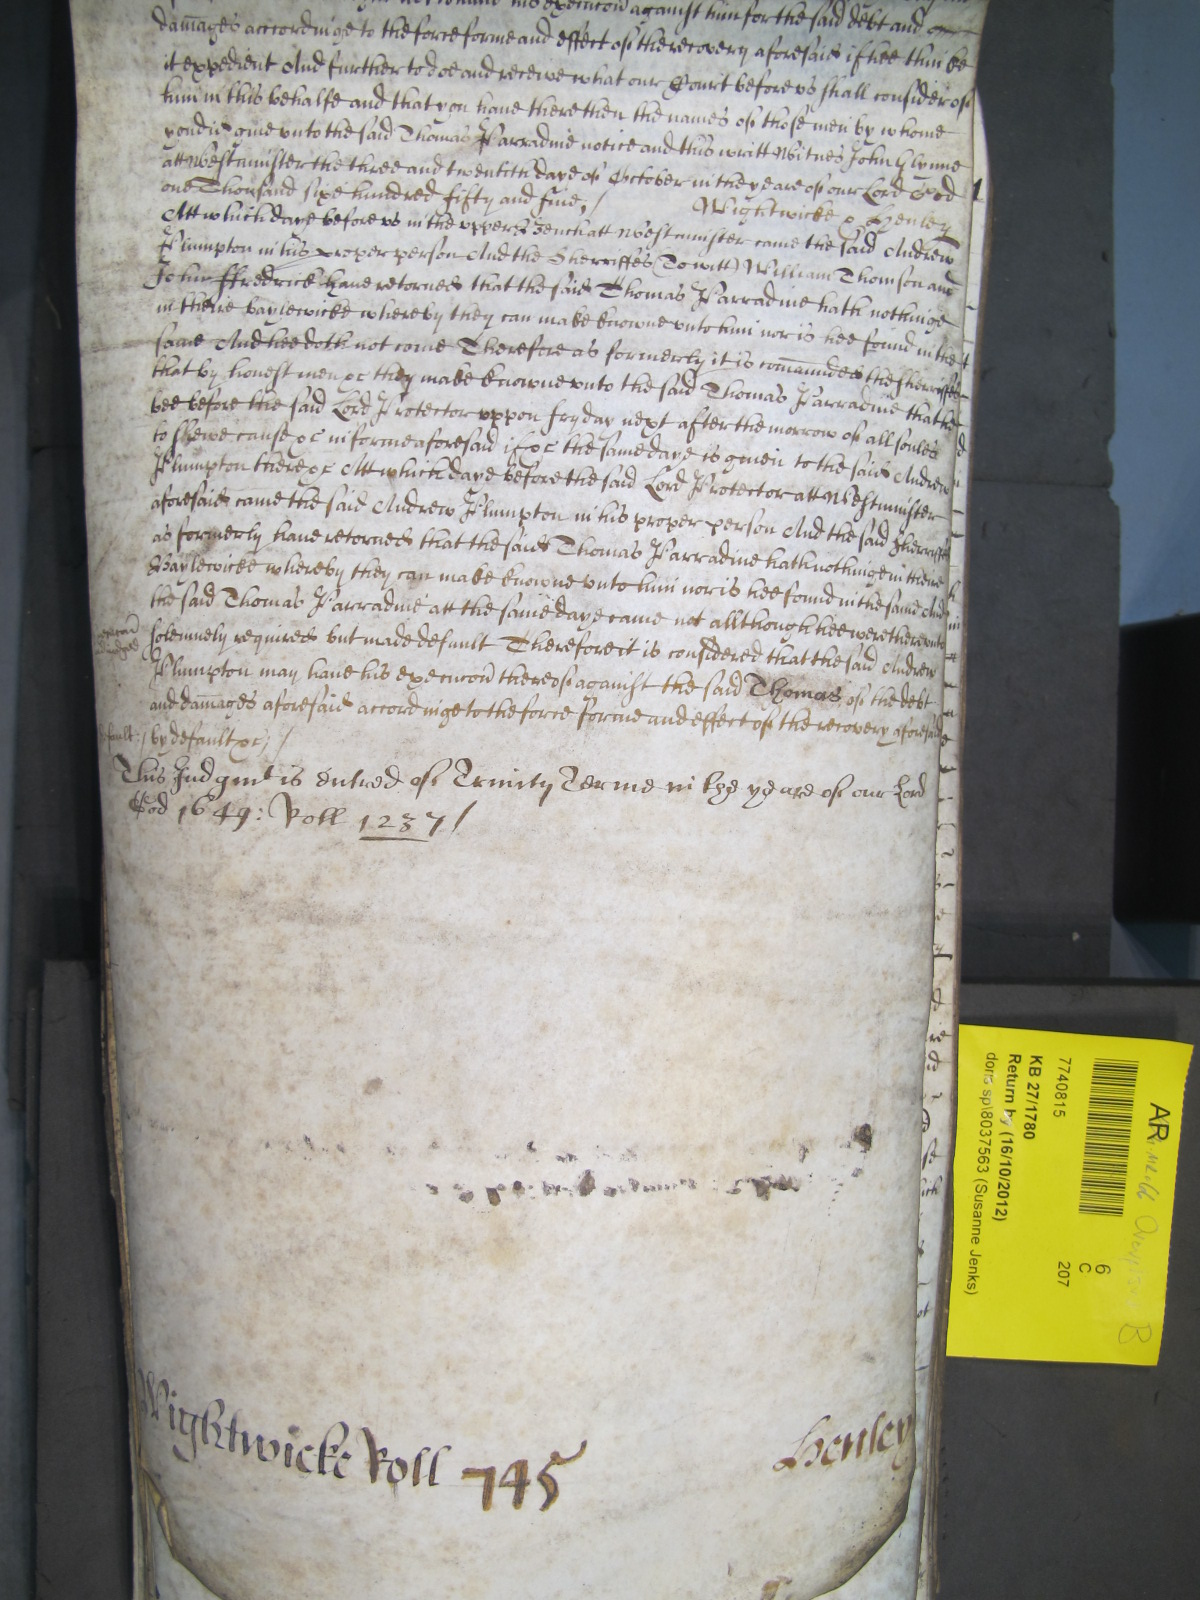 his execucon against him for the said debt and
damages accordinge to the force forme and effect of the recovery aforesaid if hee thinke
it expedient And further to doe and receive what our Court before us shall consider of
him in this behalfe and that you have there then the names of those men by whome
you did give unto the said Thomas Parradine notice and this writt Witnes John Glynne
att Westminster the three and twentith daye of October in the yeare of our Lord God
one Thousand sixe hundred fifty and five,/ Wightwicke & Henley
Att which daye before us in the upper Bench att Westminster came the said Andrew
Plumpton in his proper person And the Sherriffes (To witt) William Thomson and
John Ffredrick have retorned that the said Thomas Parradine hath nothinge
in theire baylewicke whereby they can make knowne unto him nor is hee found in the
same And hee doth not come Therefore as formerly it is commanded the Sherriffes
that by honest men &c they make knowne unto the said Thomas Parradine that hee
bee before the said Lord Protector uppon fryday next after the morrow of all soules
to shewe cause &c in forme aforesaid if &c the same daye is given to the said Andrew
Plumpton there &c Att which daye before the said Lord Protector att Westminster
aforesaid came the said Andrew Plumpton in his proper person And the said Sherriffes
as formerly have retorned that the said Thomas Parradine hath nothinge in theire
Baylewicke whereby they can make knowne unto him nor is hee found in the same And
the said Thomas Parradine att the same daye came not allthough hee were thereunto
solemnely required but made default Therefore it is considered that the said Andrew
Plumpton may have his execucon thereof against the said Thomas of the debt
and damages aforesaid accordinge to the force forme and effect of the recovery aforesaid
by default &c,/
This Judgmt is entred of Trinity Terme in the yeare of our Lord
God 1649: Roll 1237/
Wightwicke Roll 745 Henley
AR
6
C
207
7740815
KB 27/1780
Return by (16/10/2012)
doris sp\8037563 (Susanne Jenks)